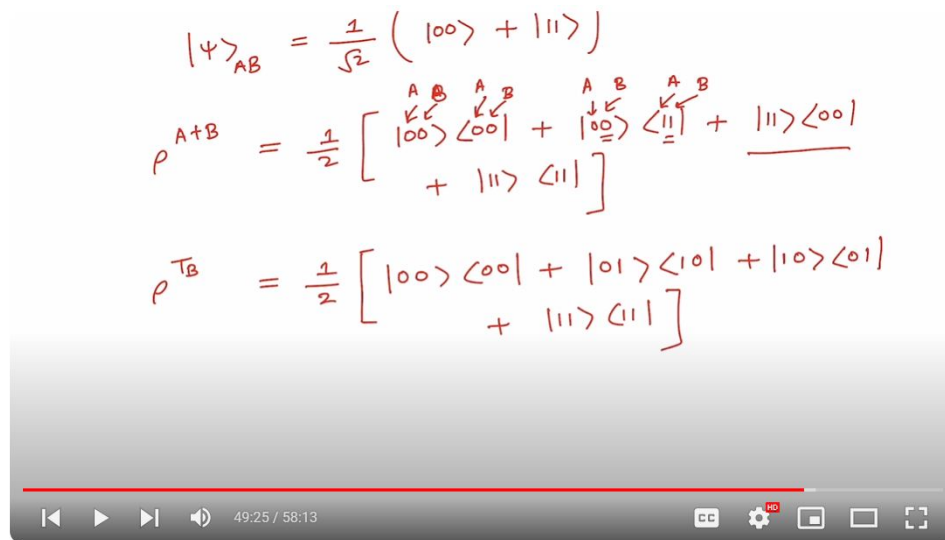 |ψ⟩_AB = 1/√2 ( |00⟩ + |11⟩ )
A B A B A B A B
ρ^{A+B} = 1/2 [ |00⟩⟨00| + |00⟩⟨11| + |11⟩⟨00|
+ |11⟩⟨11| ]
ρ^{T_B} = 1/2 [ |00⟩⟨00| + |01⟩⟨10| + |10⟩⟨01|
+ |11⟩⟨11| ]
49:25 / 58:13 CC HD